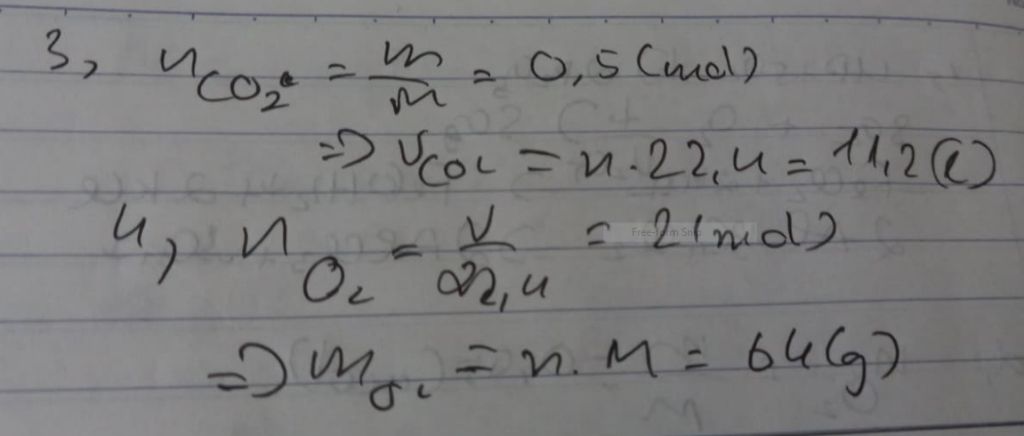 3, nCO₂ = m/m = 0,5 (mol)
=> VCO₂ = n.22,4 = 11,2 (l)
4, nO₂ = V/22,4 = 2 (mol)
=> mO₂ = n.M = 64 (g)